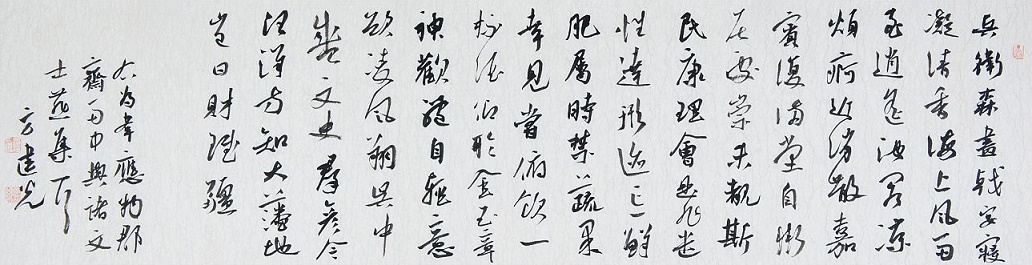 兵衛森畫戟宴寢
凝清香海上風雨
至逍遙池閣涼
煩痾近消散嘉
賓復滿堂自慚
居處崇未覩斯
民康理會是非遣
性達形迹忘鮮
肥屬時禁蔬果
幸見嘗俯飲一
杯酒仰聆金玉章
神歡體自輕意
欲凌風翔吳中
盛文史群彥今
汪洋方知大藩地
豈曰財賦疆
右為韋應物郡
齋雨中與諸文
士燕集
方建光